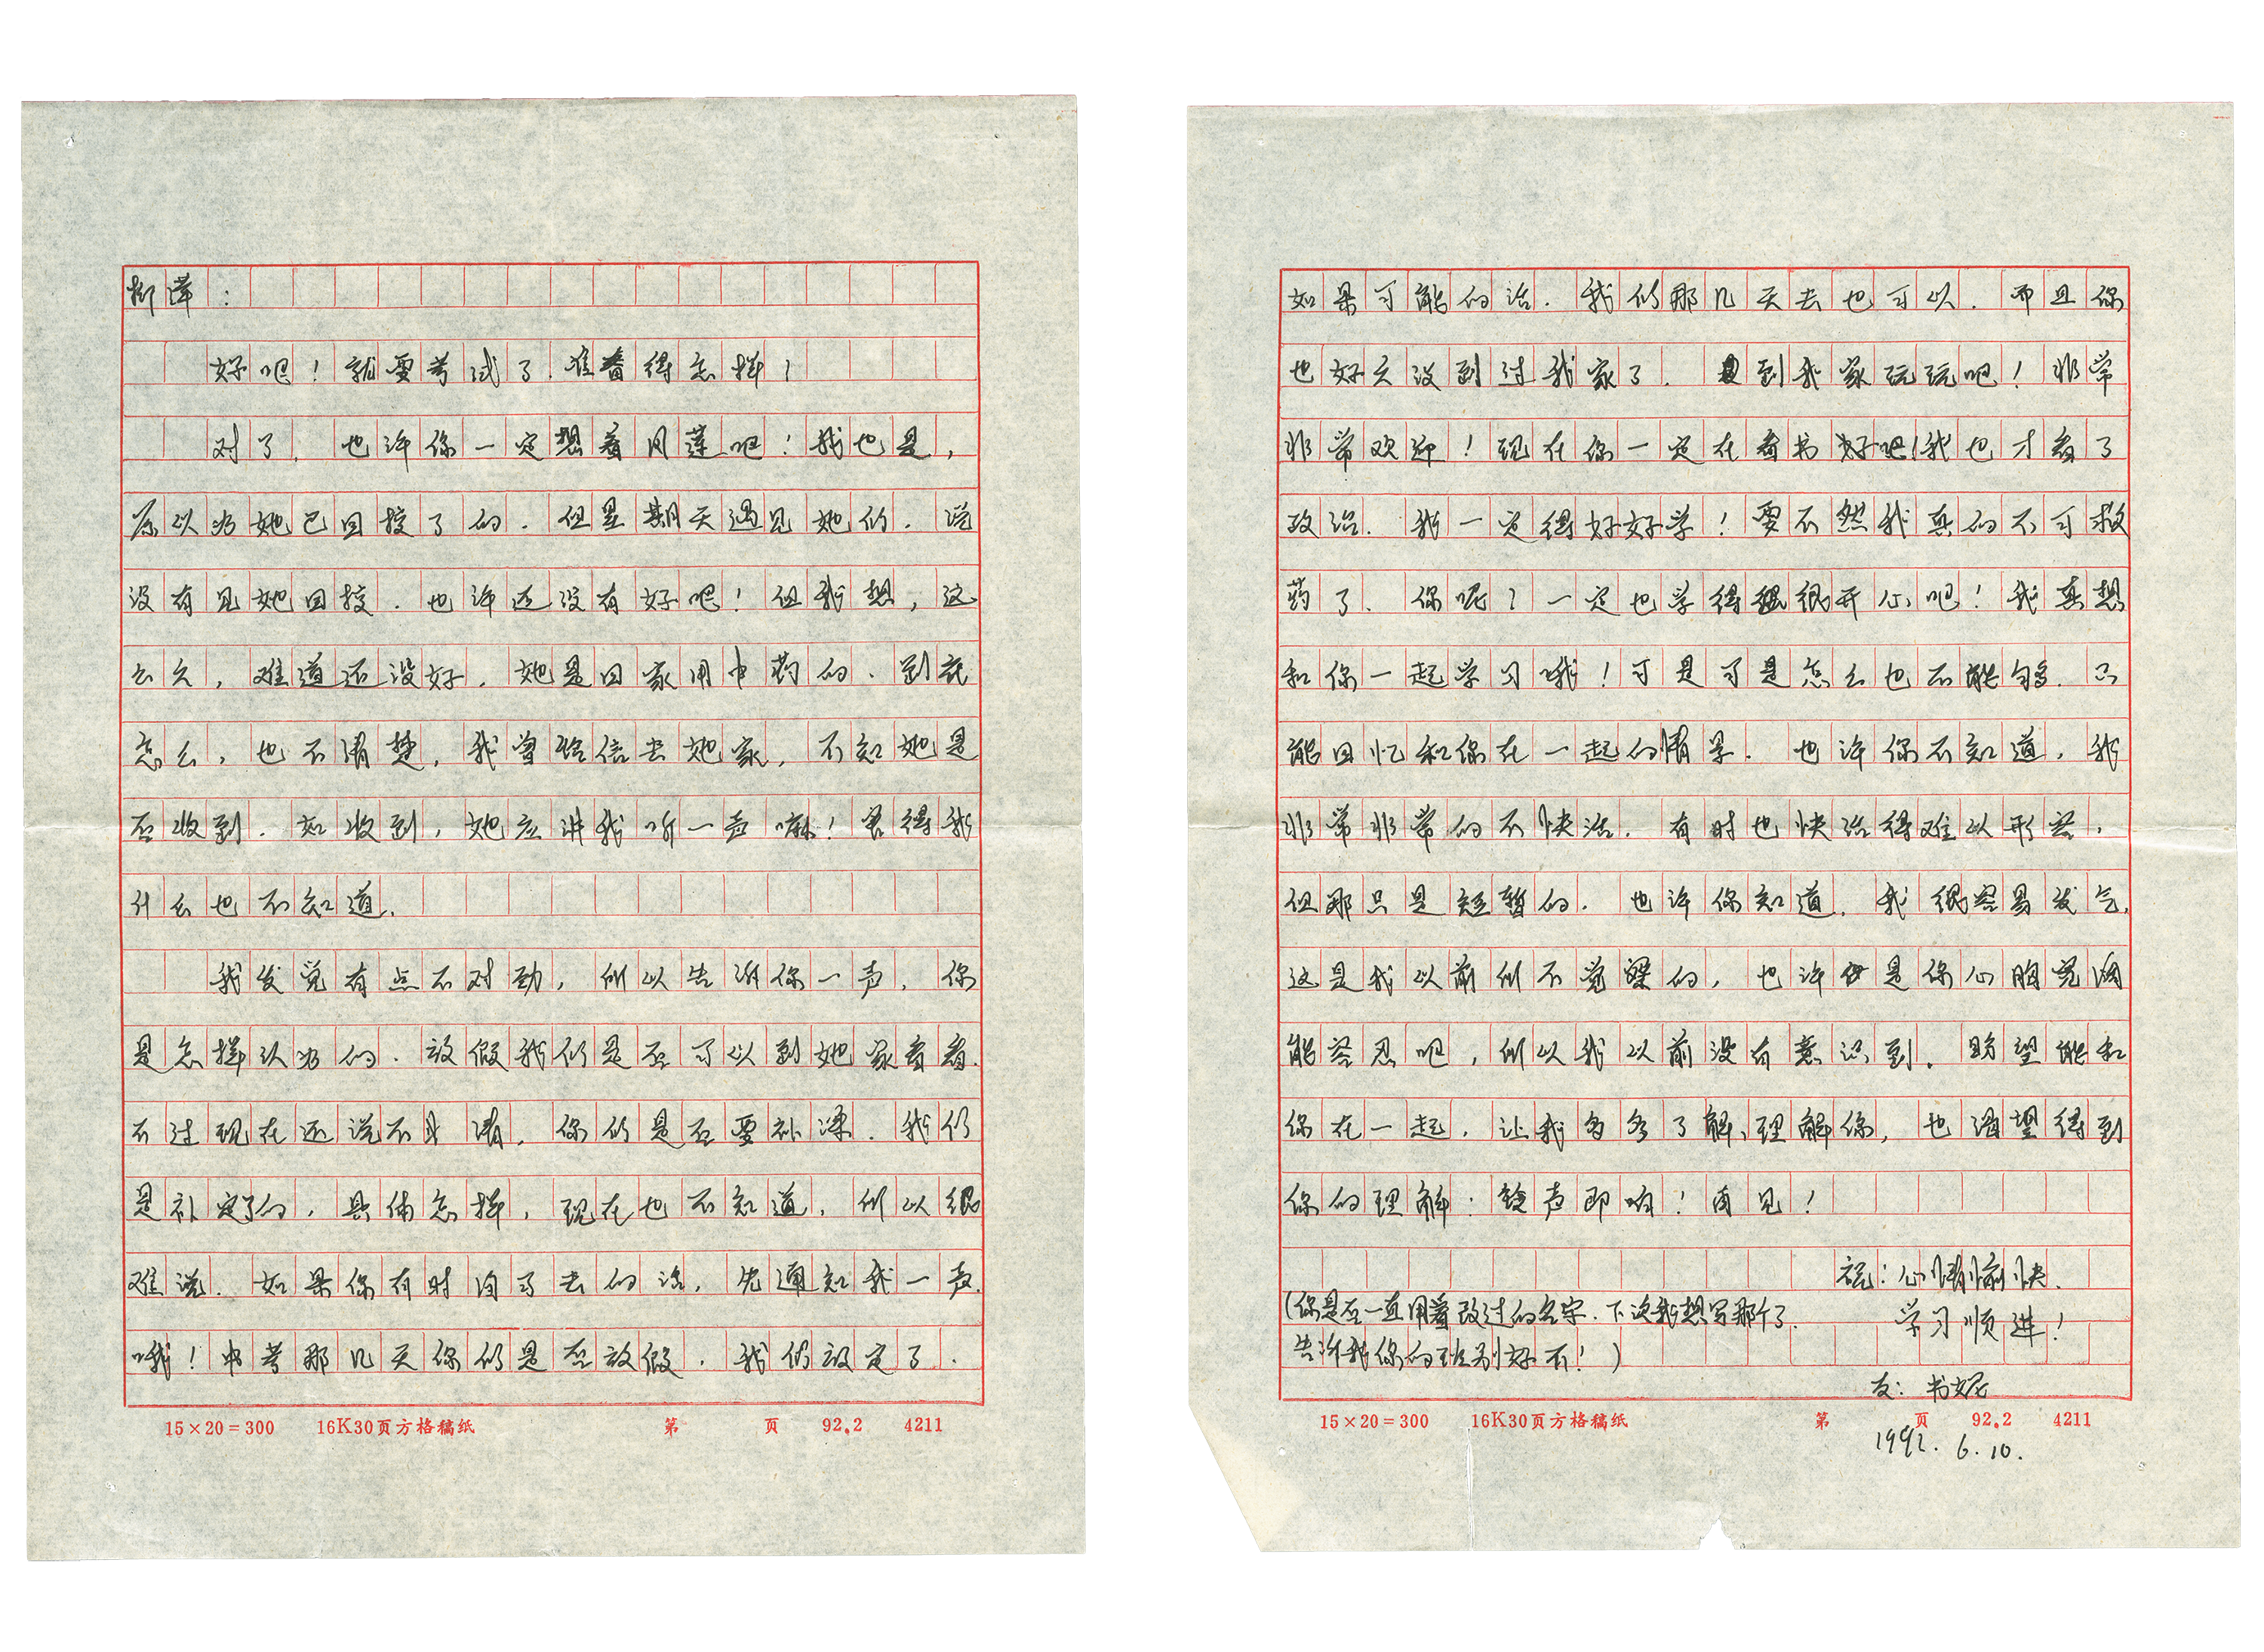 柳萍：
好吧！就要考试了．准备得怎样？
对了，也许你一定想着月莲吧！我也是，
原以为她已回校了的．但星期天遇见她们．说
没有见她回校．也许还没有好吧！但我想，这
么久，难道还没好．她是回家用中药的．到底
怎么，也不清楚，我曾给信去她家，不知她是
否收到．如收到，她应讲我听一声嘛！害得我
什么也不知道．
我发觉有点不对劲，所以告诉你一声．你
是怎样认为的．放假我们是否可以到她家看看．
不过现在还说不清．你们是否要补课．我们
是补定了的，具体怎样，现在也不知道，所以很
难说．如果你有时间了去的话，先通知我一声
哦！中考那几天你们是否放假．我们放定了．
15×20=300 16K30页方格稿纸 第 页 92.2 4211
如果可能的话．我们那几天去也可以．而且你
也好久没到过我家了．到我家玩玩吧！非常
非常欢迎！现在你一定在看书好吧！我也才看了
政治．我一定得好好学！要不然我真的不可救
药了．你呢？一定也学得很开心吧！我真想
和你一起学习哦！可是可是怎么也不能够．只
能回忆和你在一起的情景．也许你不知道，我
非常非常的不快活．有时也快活得难以形容，
但那只是短暂的．也许你知道．我很容易发气，
这是我以前所不觉察的，也许是你心胸宽阔
能容忍吧，所以我以前没有意识到．盼望能和
你在一起．让我多多了解、理解你，也渴望得到
你的理解：铃声即响！再见！
祝：心情愉快．
学习顺进！
（你是否一直用着改过的名字．下次我想写那个了．
告诉我你的班别好不！）
友：书妮
1992．6．10．
15×20=300 16K30页方格稿纸 第 页 92.2 4211